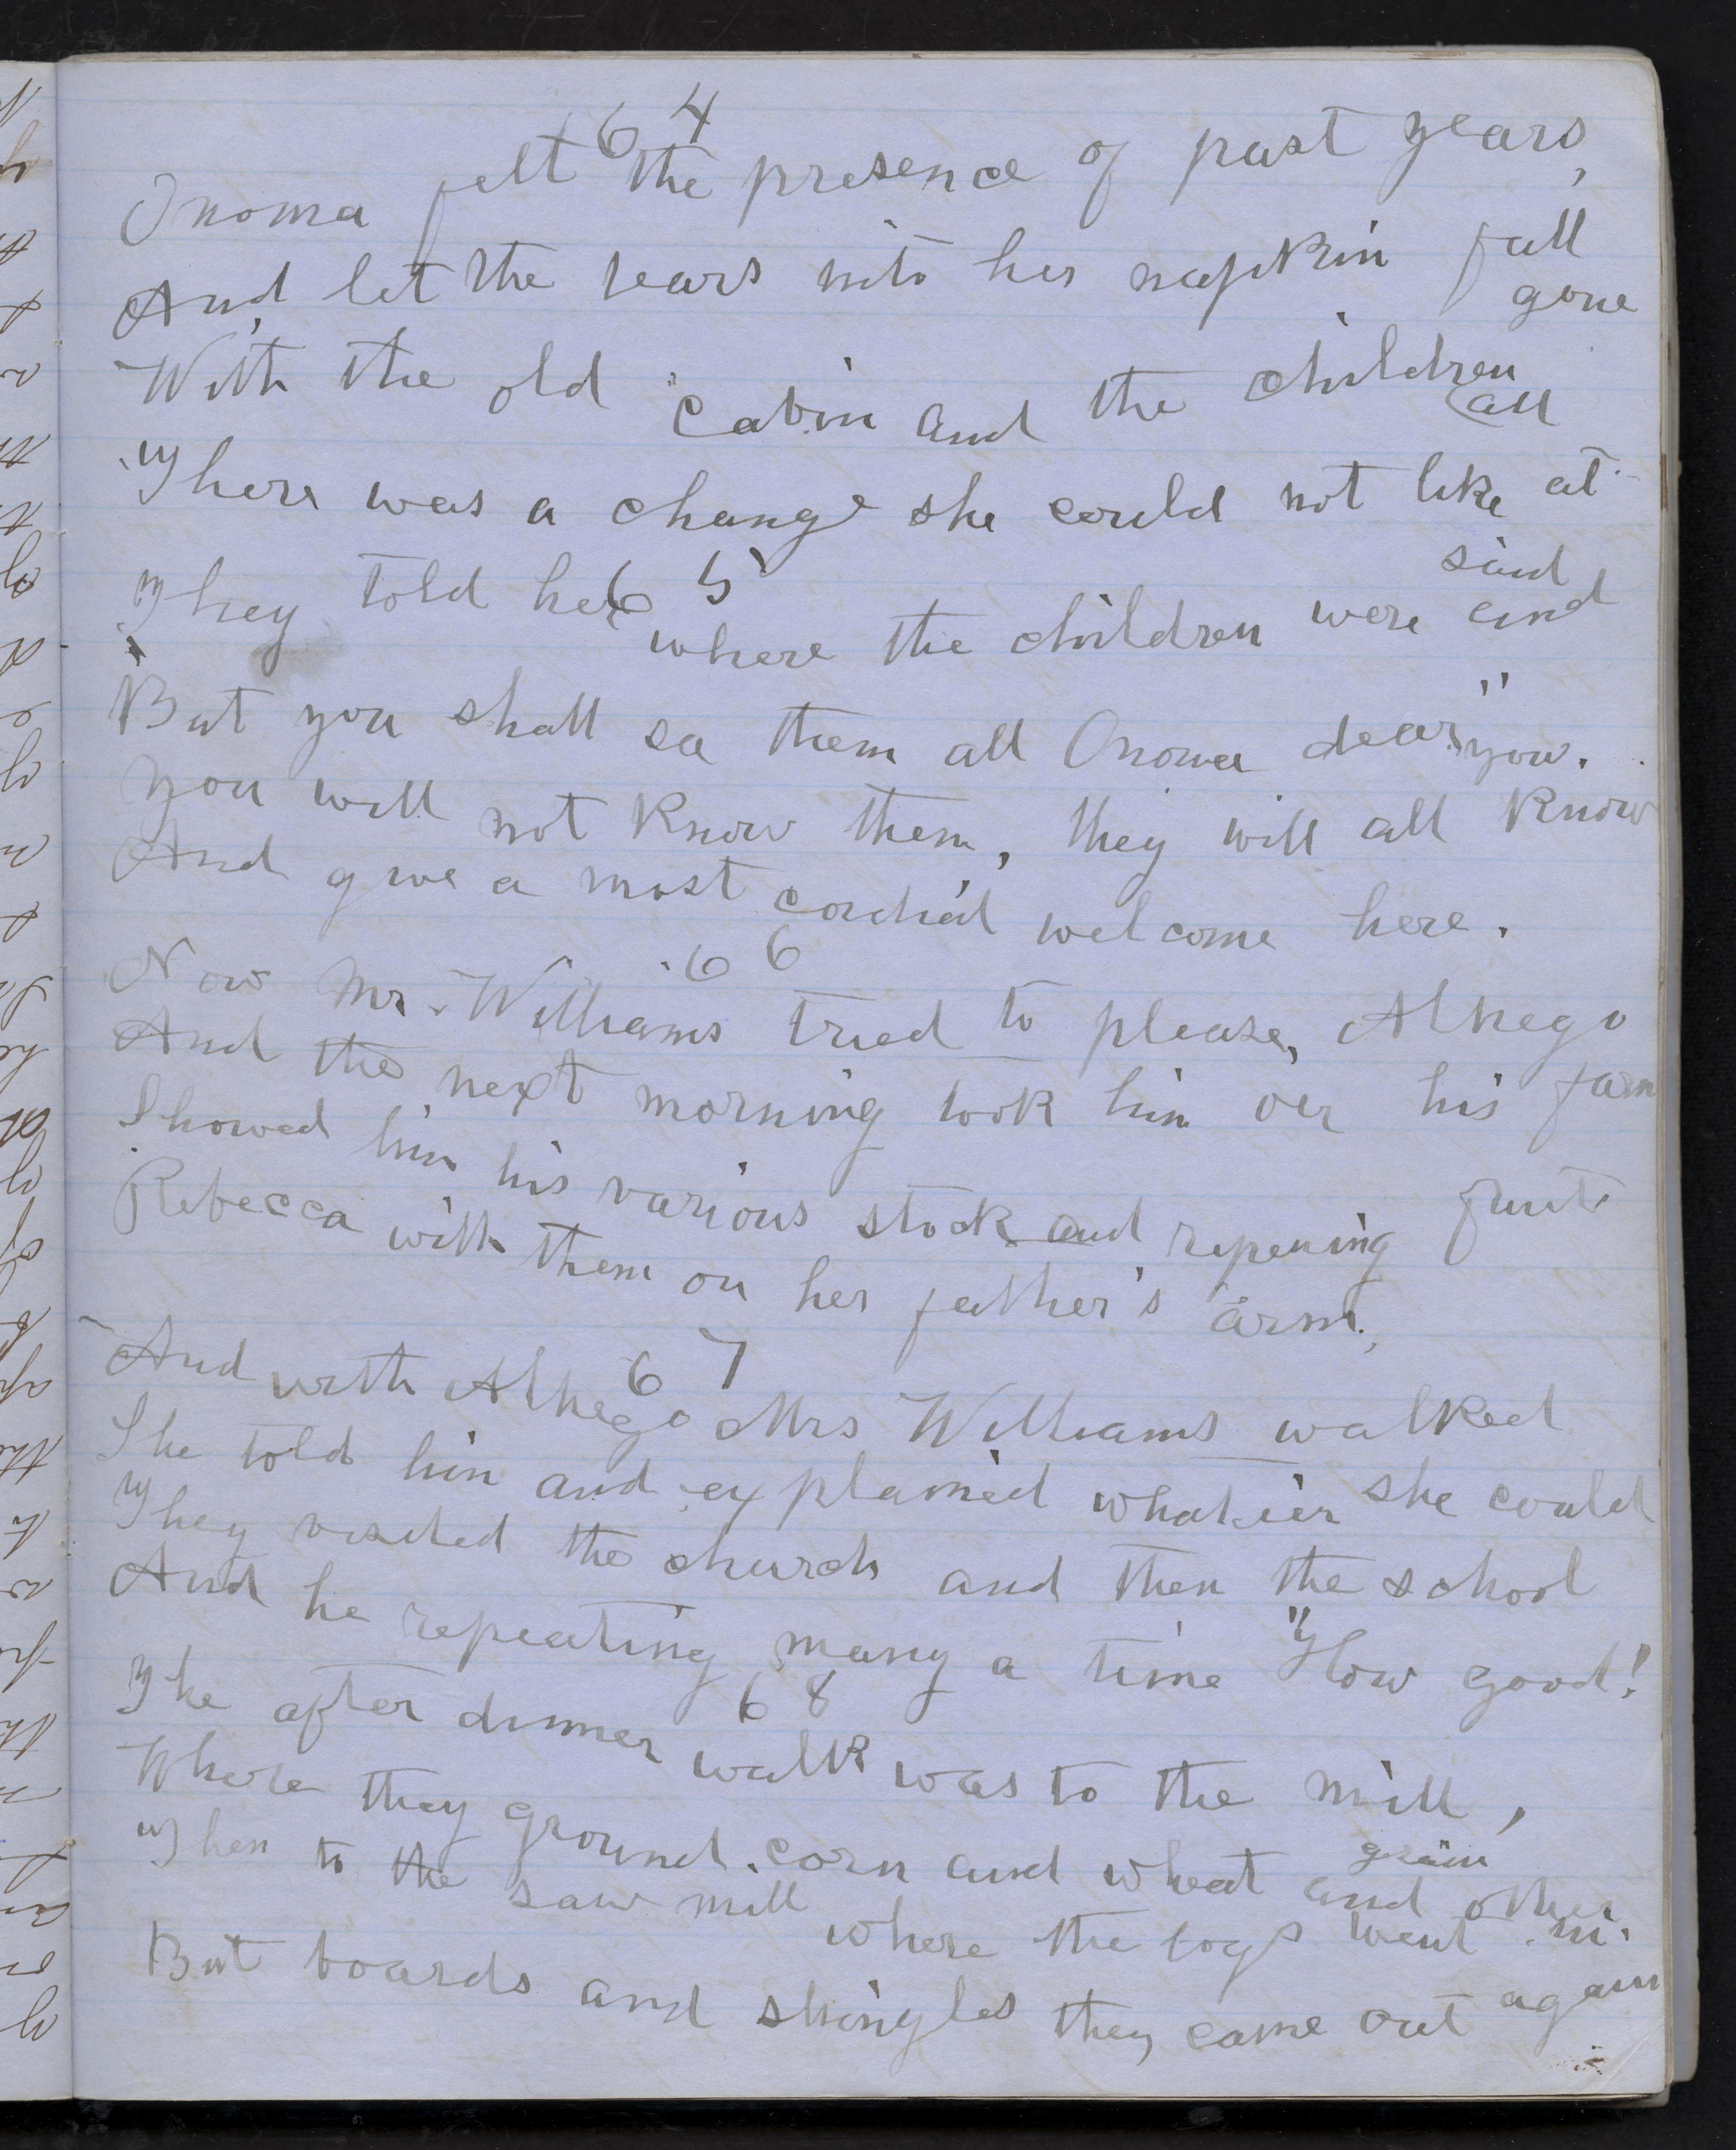 64
Onoma felt the presence of past years,
And let the tears into her napkin fall
With the old cabin and the children gone
There was a change she could not like at all
65
They told her where the children were and said
But you shall see them all Onowa dear"
You will not know them, they will all know you.
And give a most cordial welcome here.
66
Now Mr. Williams tried to please, Alhego
And the next morning took him oer his farm
Showed him his various stock and repening fruit
Rebecca with them on her father's arm.
67
And with Alhego Mrs Williams walked
She told him and explained what-e'er she could
They visited the church and then the school
And he repeating many a time "How good!
68
The after dinner walk was to the mill,
Where they ground corn and wheat and other grain
Then to the saw mill where the logs went in.
But boards and shingles they came out again